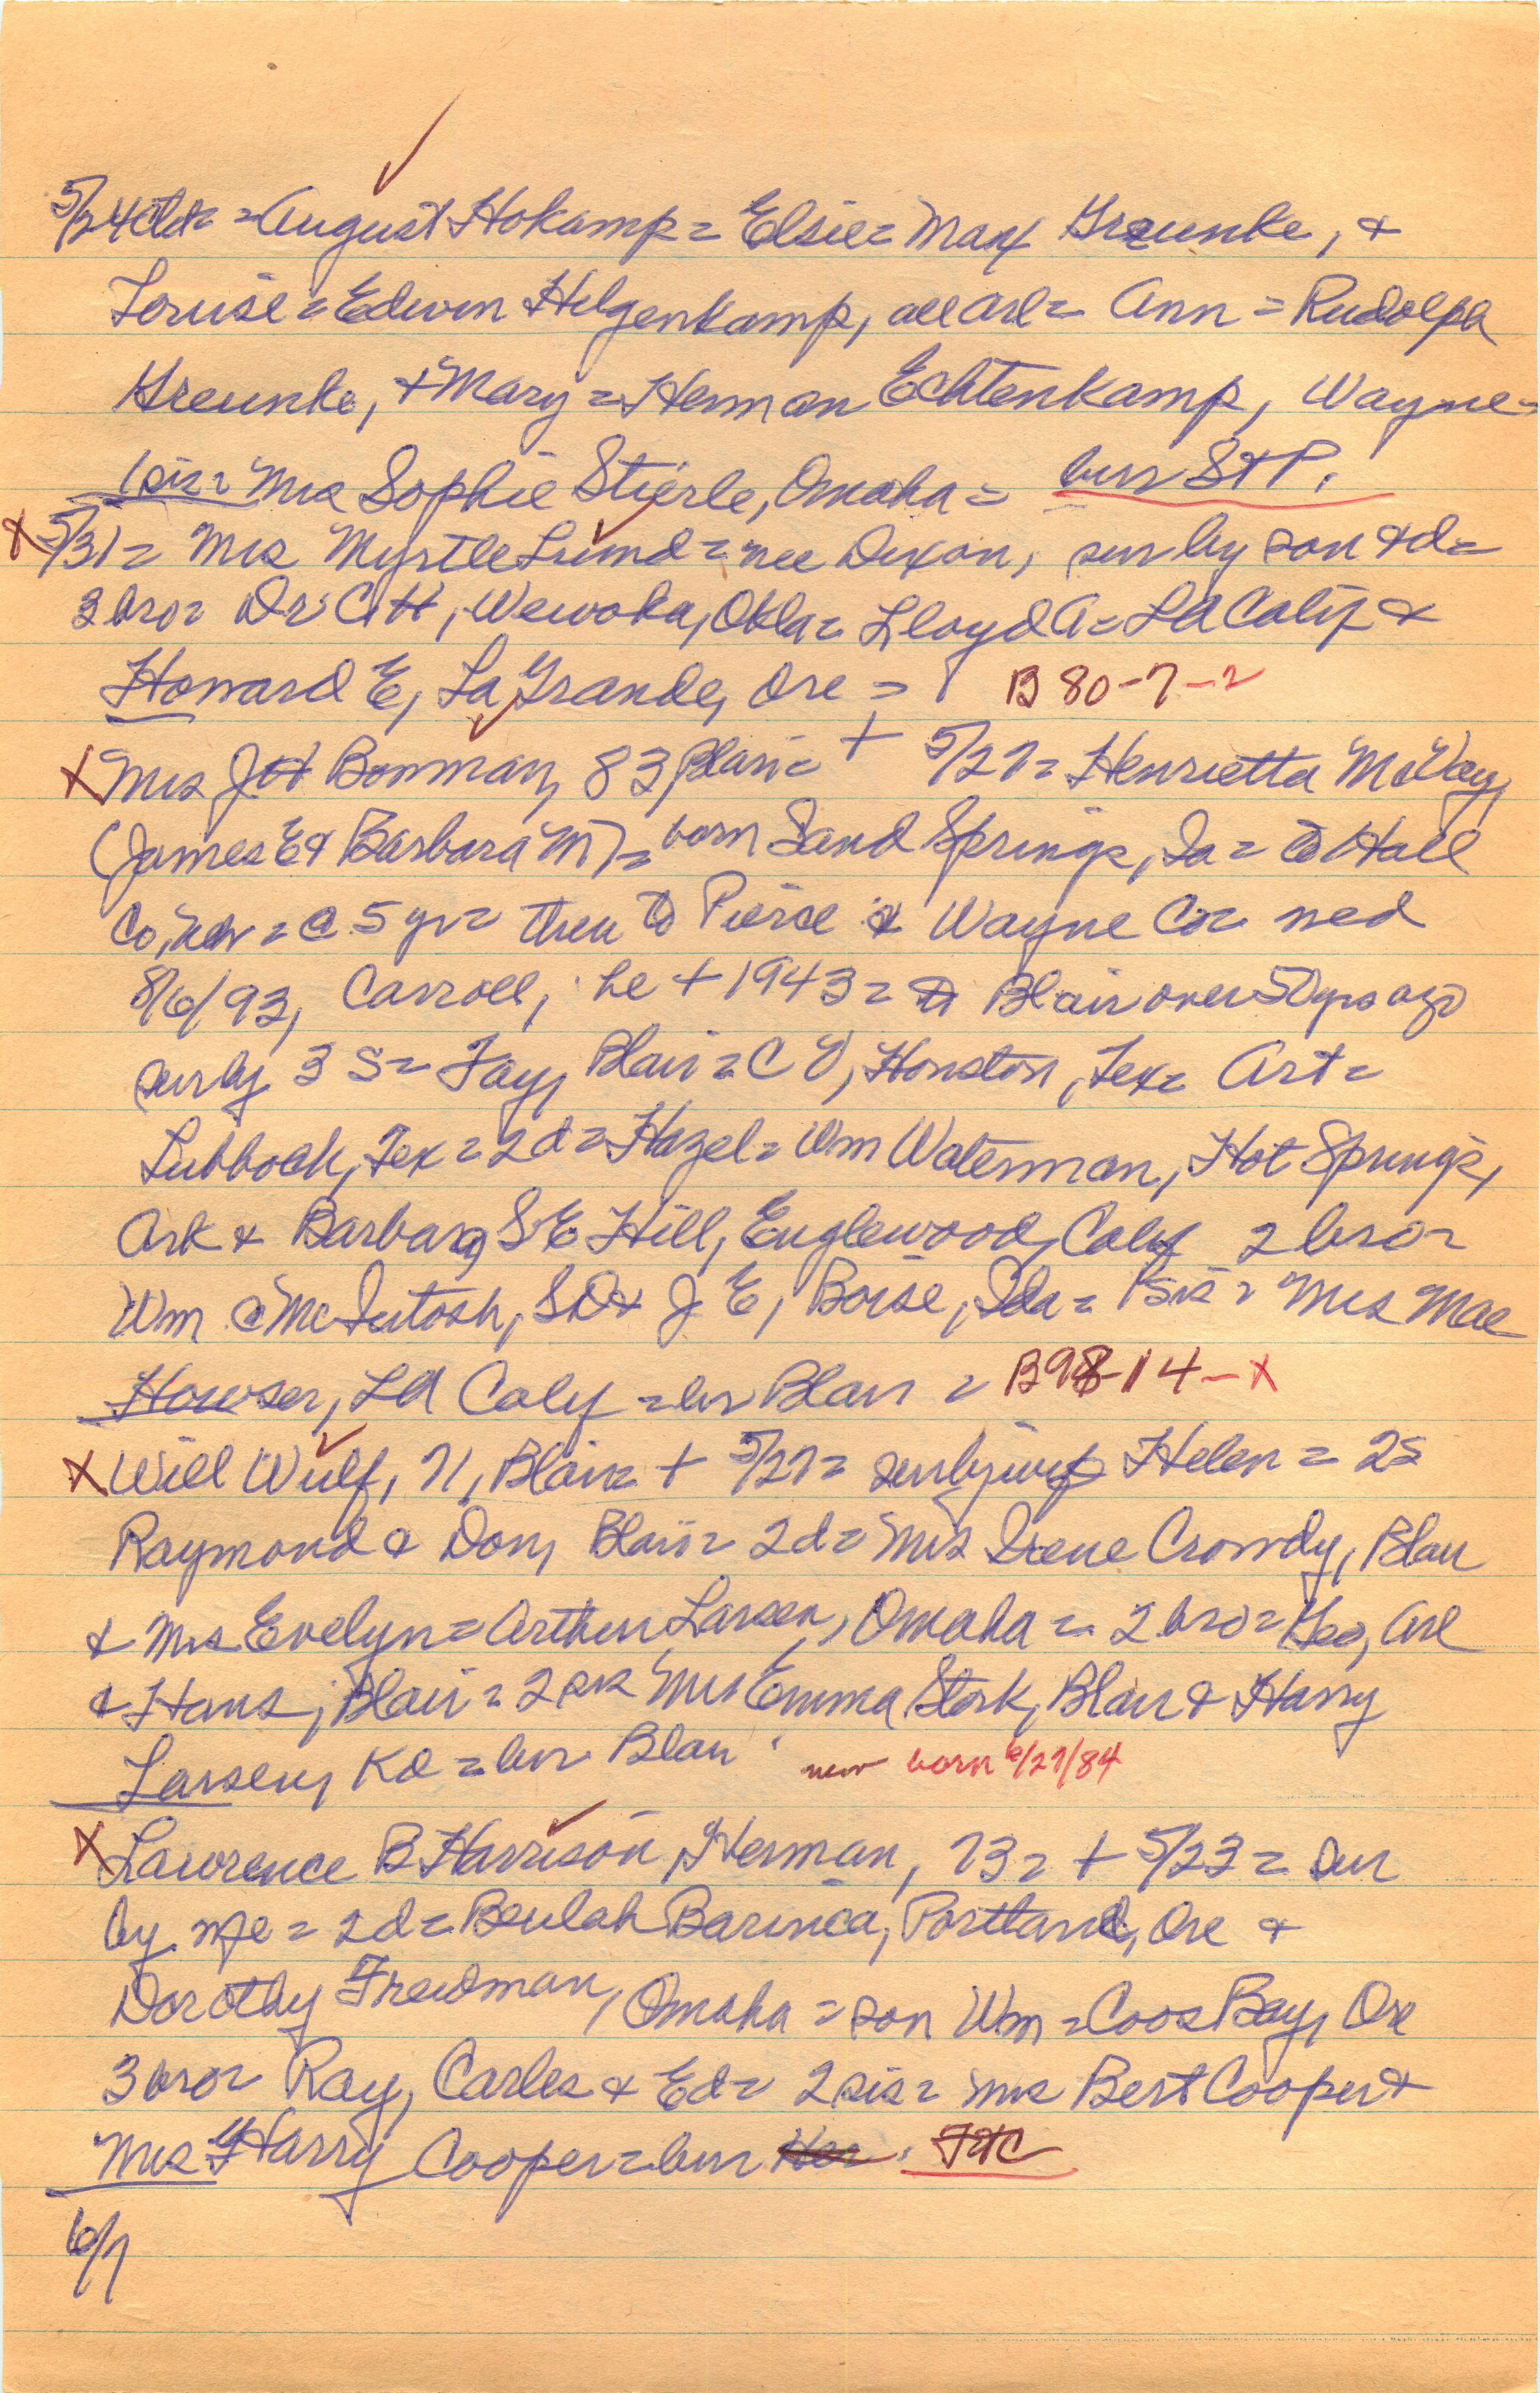 5/24 ctd = August Hokamp = Elsie = Max Greunke, &
Louise = Edwin Helgenkamp, all Arl = Ann = Rudolph
Greunke, + Mary = Herman Echtenkamp, Wayne =
1 sis = Mrs Sophie Stierle, Omaha = bur St P.
X 5/31 = Mrs Myrtle Lund = nee Dixon, sur by son & d =
3 bro = Dr C H, Wewoka, Okla = Lloyd A = LA Calif &
Howard E, La Grande, Ore = B 80-7-2
X Mrs J H Bowman, 83, Blair = + 5/27 = Henrietta McVay,
(James E & Barbara M) = born Sand Springs, Ia = to Hall
Co, Neb = @ 5 yr = then to Pierce & Wayne Co = med
8/6/93, Carroll, he + 1943 = to Blair over 50 yrs ago
sur by 3 S = Fay, Blair = C V, Houston, Tex = Art =
Lubbock, Tex = 2 d = Hazel = Wm Waterman, Hot Springs,
Ark & Barbara, S E Hill, Englewood, Calif 2 bro =
Wm @ McIntosh, SD & J E, Boise, Ida = 1 sis = Mrs Mae
Howser, LA Calif = bur Blair = B98-14-X
X Will Wulf, 71, Blair = + 5/27 = sur by wife Helen = 2 s
Raymond & Don, Blair = 2 d = Mrs Irene Crowdy, Blair
& Mrs Evelyn = Arthur Larsen, Omaha = 2 bro = Geo, Arl
& Hans, Blair = 2 sis Mrs Emma Stork, Blair & Harry
Larsen, Kd = bur Blair new born 6/27/84
X Lawrence B Harrison, Herman, 73 = + 5/23 = sur
by wfe = 2 d = Beulah Barinca, Portland, Ore &
Dorothy Freidman, Omaha = son Wm = Coos Bay, Ore
3 bro = Ray, Carles & Ed = 2 sis = Mrs Bert Cooper &
Mrs Harry Cooper = bur Her. FHC
6/7